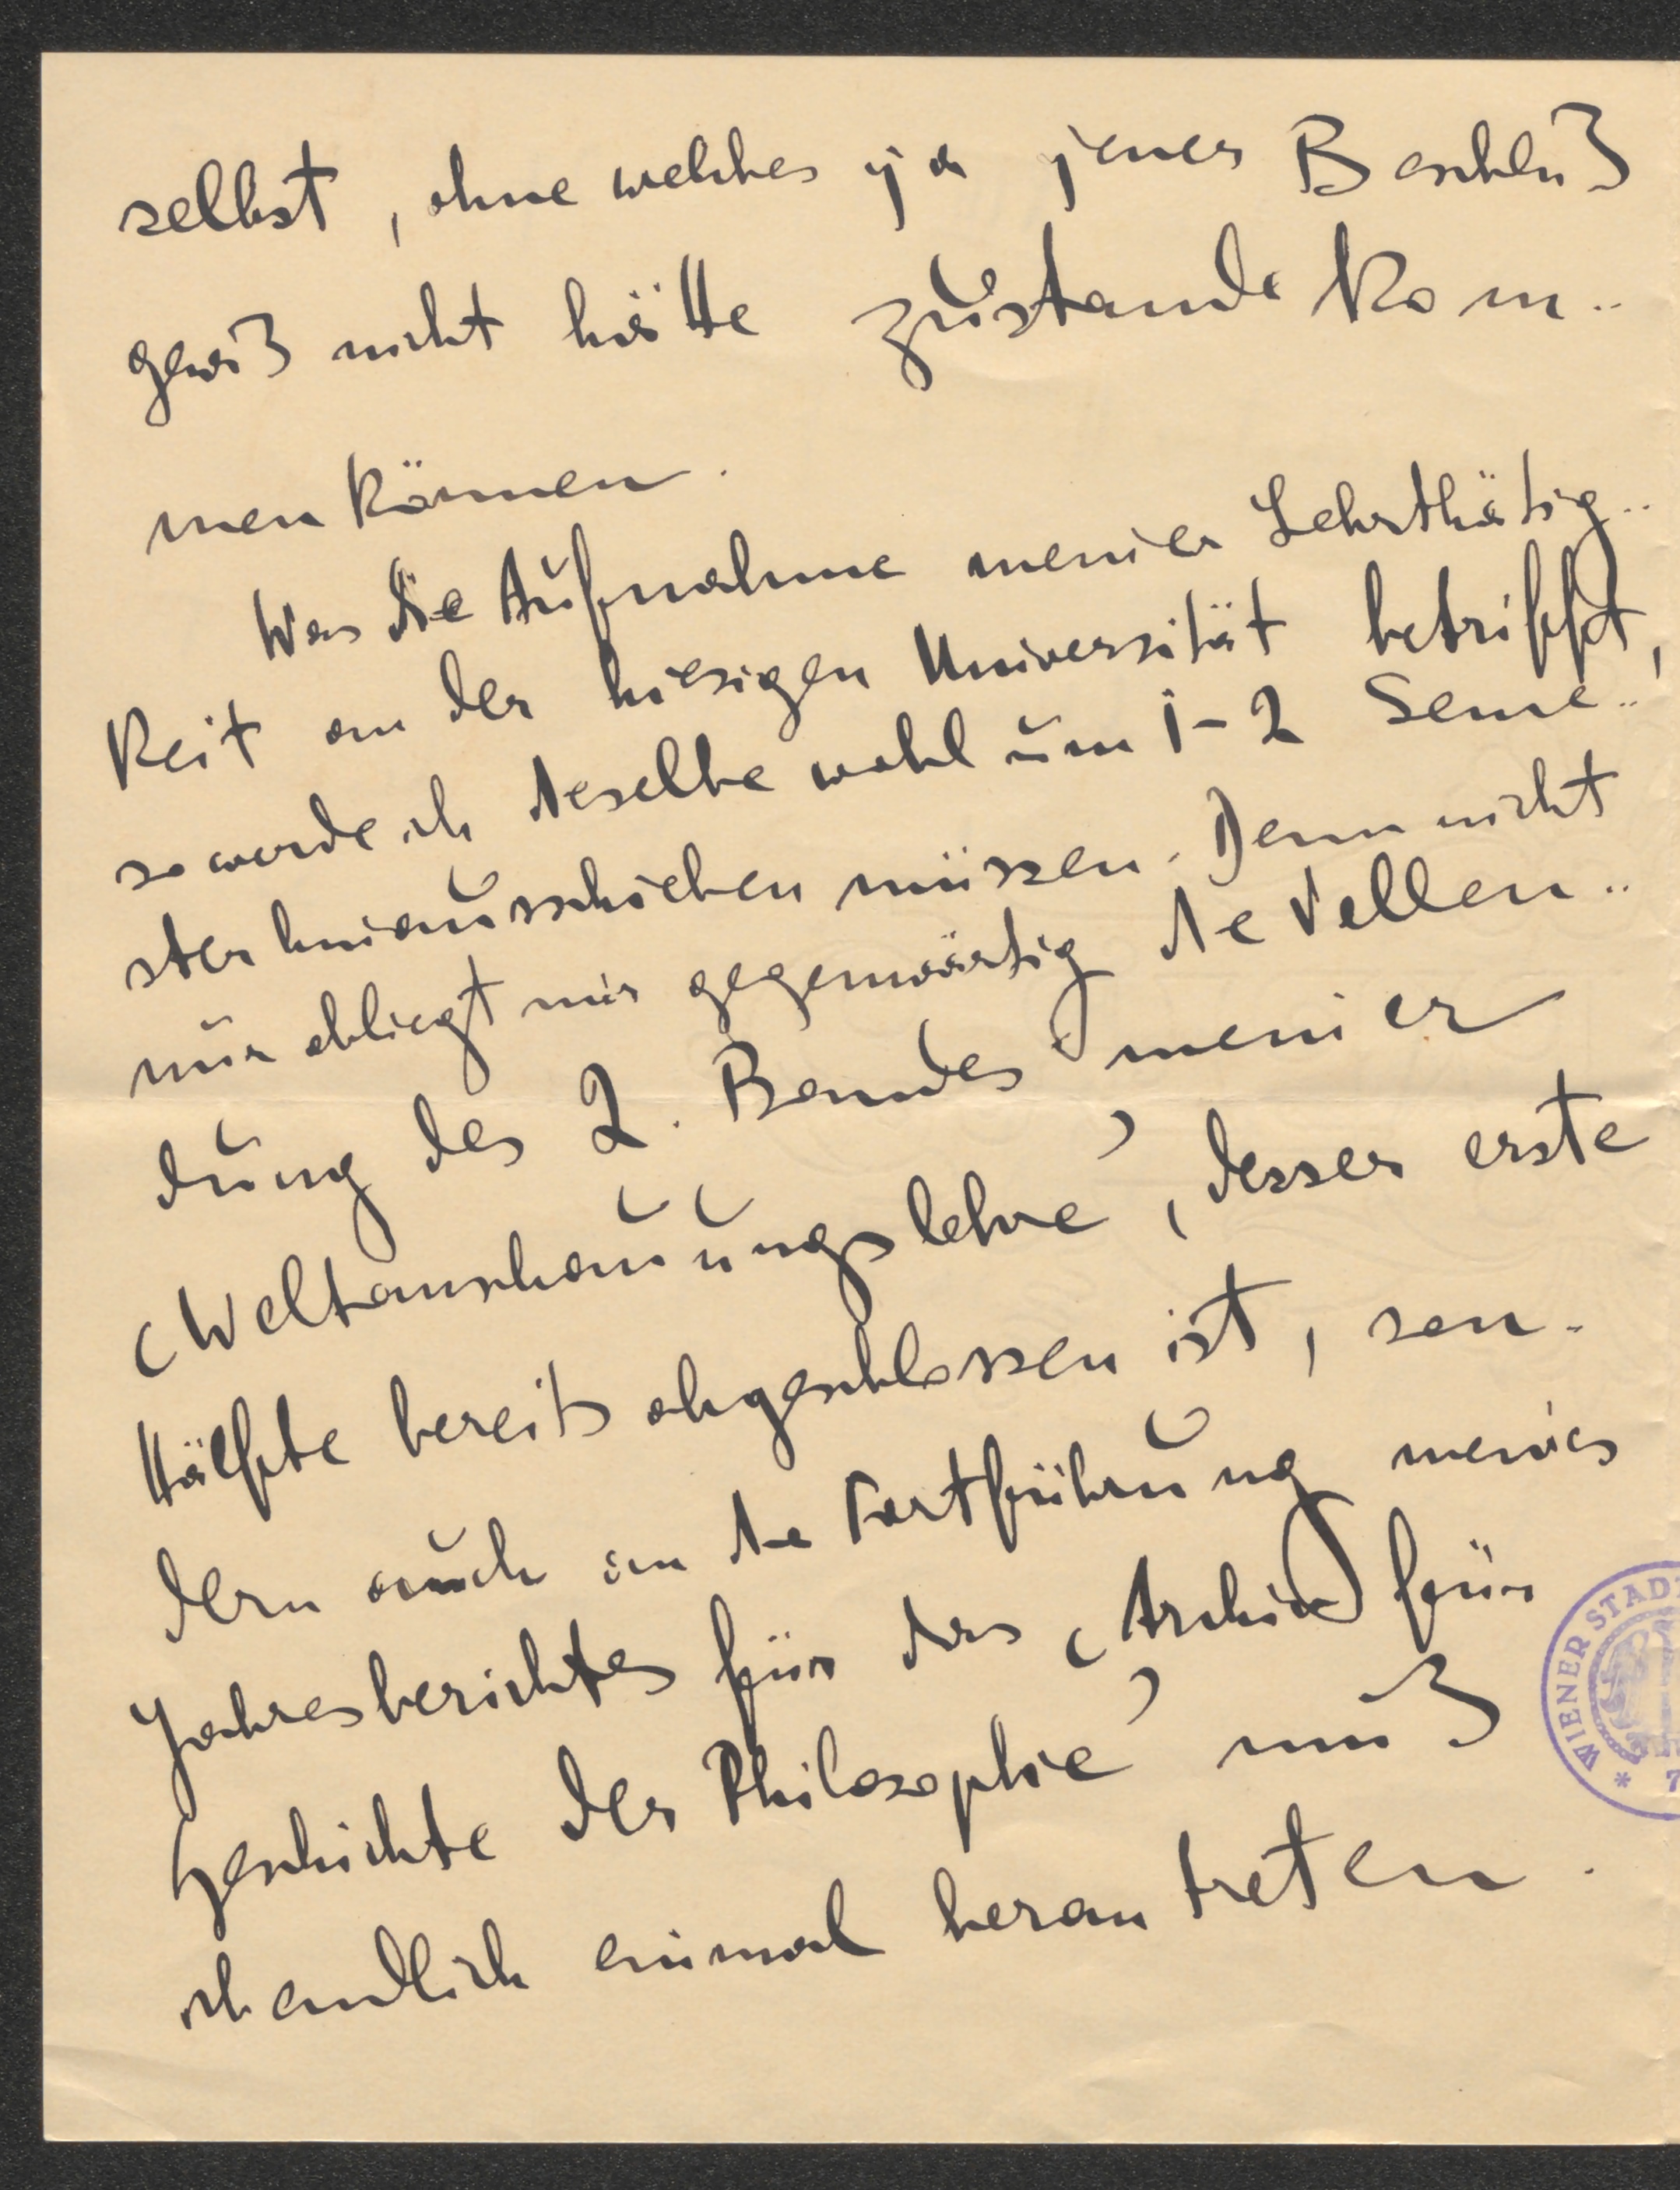 selbst, ohne welches ja jener Beschluß
gewiß nicht hätte zustande kom-
men können.
Was die Aufnahme meiner Lehrthätig-
keit an der hiesigen Universität betrifft,
so werde ich dieselbe wohl um 1-2 Seme-
ster hinausschieben müssen. Denn nicht
nur obliegt mir gegenwärtig die Vollen-
dung des 2. Bandes meiner
‚Weltanschauungslehre', dessen erste
Hälfte bereits abgeschlossen ist, son-
dern auch an die Fortführung meines
Jahresberichtes für das ‚Archiv für
Geschichte der Philosophie' muß
ich endlich einmal herantreten.
WIENER STAD
* 7